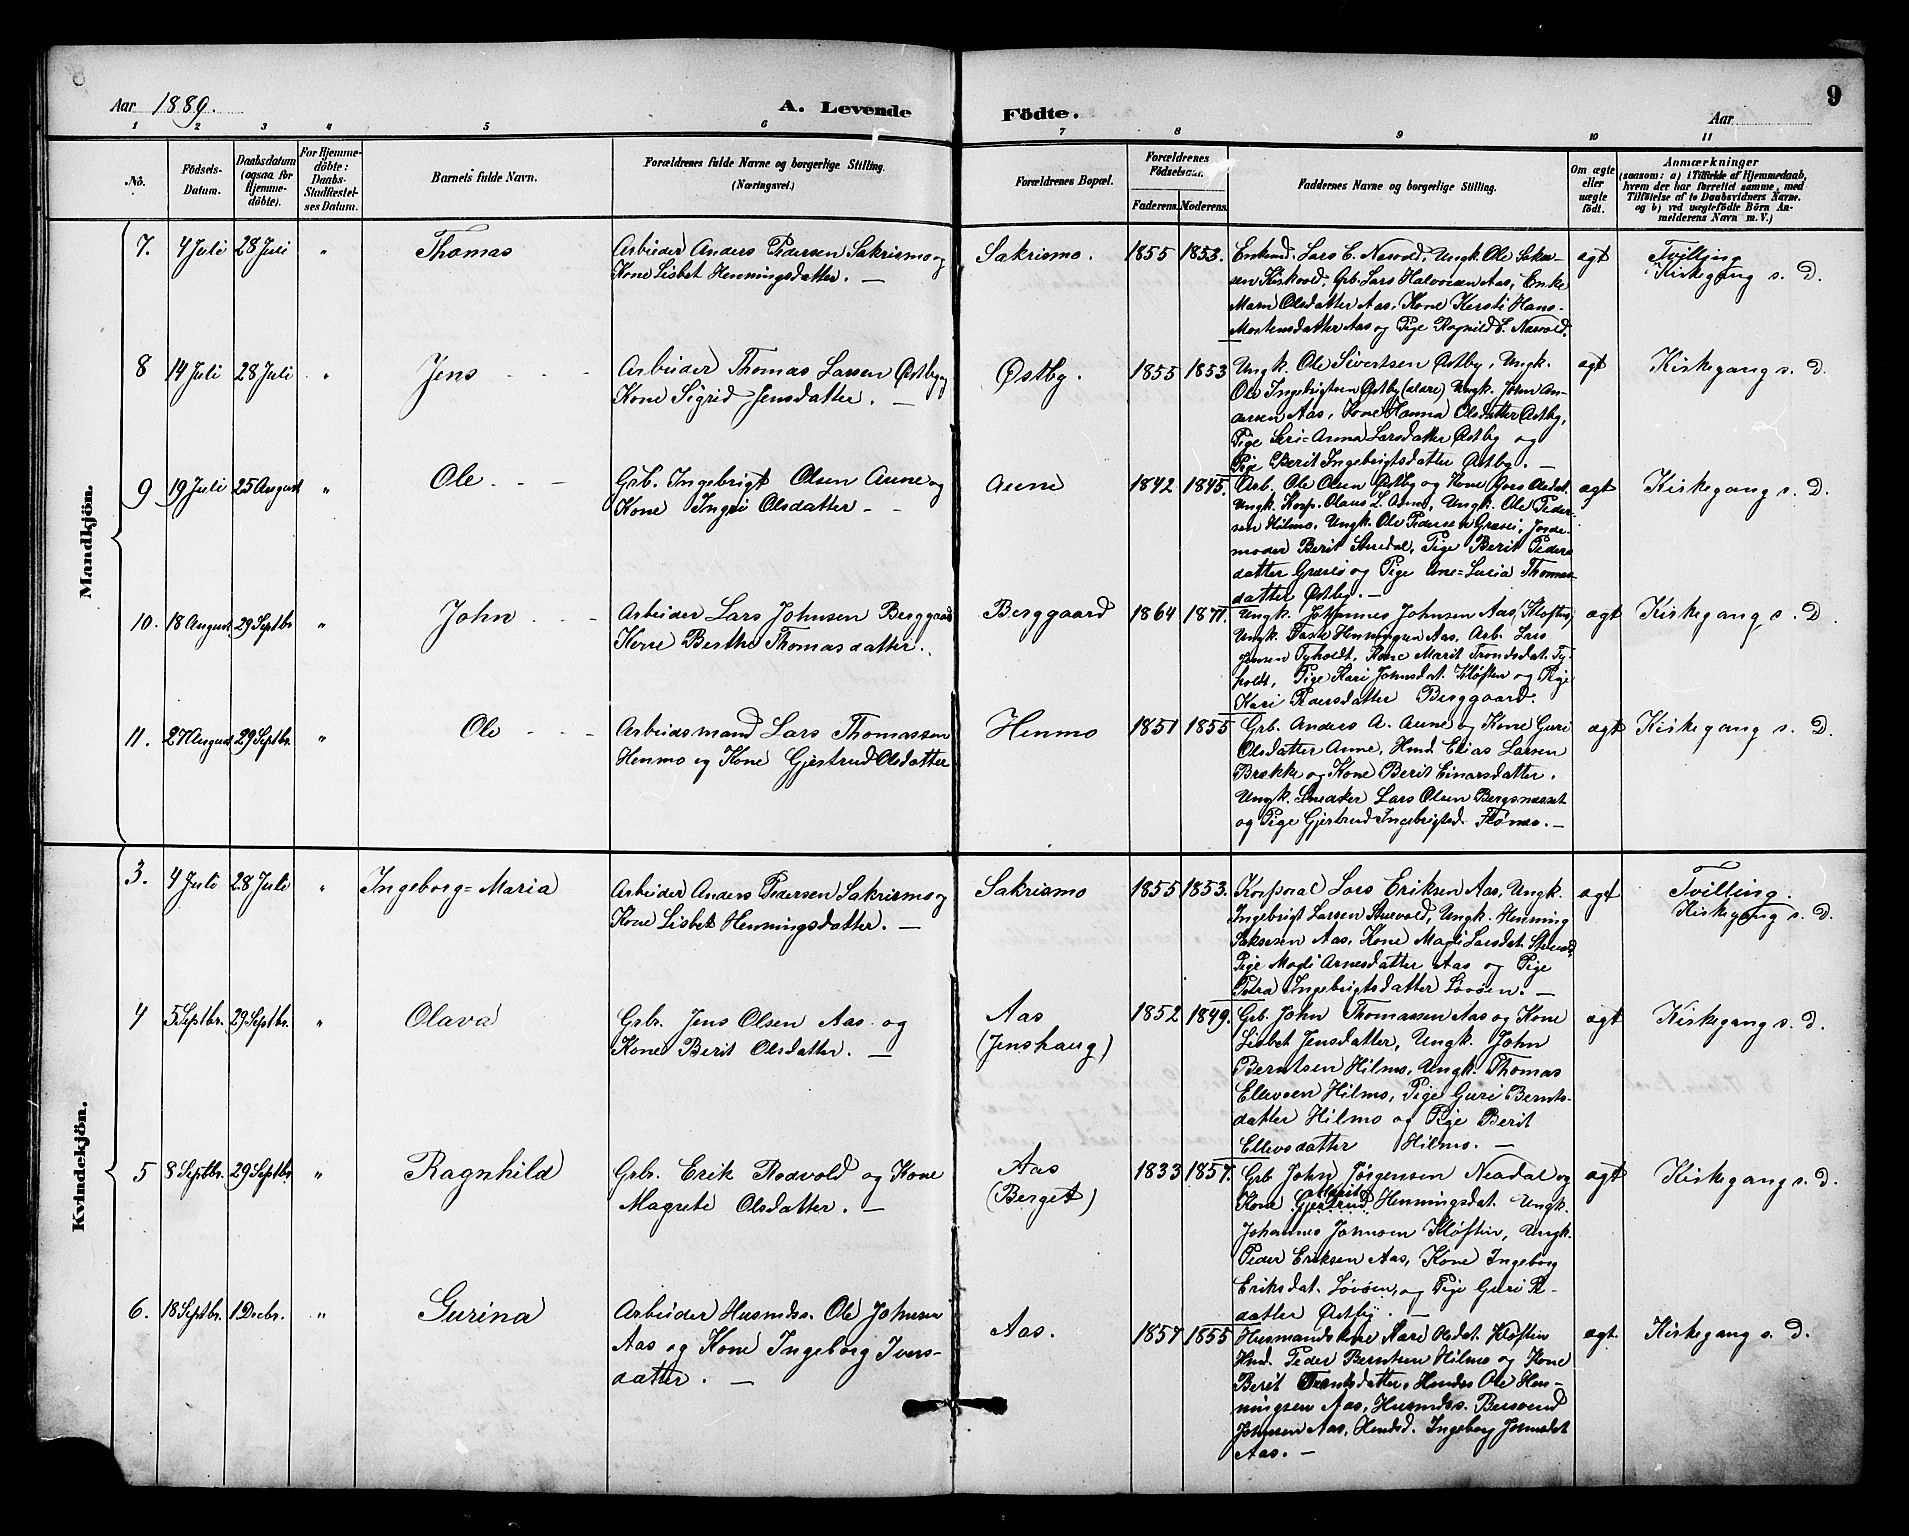 Aar 1889.
A. Levende
Födte.
Aar
9
1 2 3 4 5 6 7 8 9 10 11
No.
Födsels-
Datum.
Daabsdatum
(ogsaa for
Hjemme-
döbte).
For Hjemme-
döbte:
Daabs-
Stadfæstel-
ses Datum.
Barnets fulde Navn.
Forældrenes fulde Navne og borgerlige Stilling.
(Næringsvei.)
Forældrenes Bopæl.
Forældrenes
Födselsaar.
Faderens. Moderens.
Faddernes Navne og borgerlige Stilling.
Om ægte
eller
uægte
födt.
Anmærkninger
(saasom: a) i Tilfælde af Hjemmedaab,
hvem der har forrettet samme, med
Tilföielse af to Daabsvidners Navne.
og b) ved uægtefödte Börn An-
melderens Navn m.V.)
Mandkjön.
7. 4 Juli 28 Juli " Thomas
Arbeider Anders Pedersen Sakrismo og
Kone Lisbet Henningsdatter. —
Sakrismo. 1855 1853.
Enkemd. Lars E. Nasvold, Ungk. Ole Sakse-
sen Kirkvold, Grb. Lars Halvorsen Aas, Enke
Maren Olsdatter Aas, Kone Kersti Hans-
Mortensdatter Aas og Pige Ragnild E. Nasvold.
ægt
Tvilling
Kirkegang s. D.
8 14 Juli 28 Juli " Jens
Arbeider Thomas Larsen Østby og
Kone Sigrid Jensdatter. —
Østby. 1855 1853
Ungk. Ole Sivertsen Østby, Ungk.
Ole Ingebrigtsen Østby (eldre) Ungk. John An-
dersen Aas, Kone Hanna Olsdatter Østby,
Pige Seri-Anna Larsdatter Østby og
Pige Berit Ingebrigtsdatter Østby. —
ægt
Kirkegang s. D.
9 19 Juli 25 August " Ole
Grb. Ingebrigt Olsen Aune og
Kone Ingri Olsdatter —
Aune 1842 1845.
Arb. Ole Olsen Østby og Kone Goro Olsdat.
Ungk. Korp. Olaus L. Aune, Ungk. Ole Peder-
sen Hilmo, Ungk. Ole Pedersen Græsli, Jorde-
moder Berit Stuedal, Pige Berit Peders-
datter Græsli og Pige Ane-Lusia Thomas-
datter Østby. —
ægt
Kirkegang s. D.
10. 18 August 29 Septbr " John
Arbeider Lars Johnsen Berggaard
Kone Berthe Thomasdatter.
Berggaard 1864 1871.
Ungk. Johannes Johnsen Aas, Kløften,
Ungk. Taxe Henningsen Aas, Arb. Lars
Jensen Tyholdt, Kone Marit Trondsdat. Ty-
holdt, Pige Kari Johnsdat. Kløften og Pige
Kari Pedersdatter Berggaard.
ægt
Kirkegang s. D.
11. 27 August 29 Septbr. " Ole
Arbeidsmand Lars Thomassen
Henmo og Kone Gjertrud Olsdatter
Henmo 1851 1855
Grb. Anders A. Aune og Kone Guri
Olsdatter Aune, Hmd. Elias Larsen
Brække og Kone Berit Einarsdatter.
Ungk. Snedker Lars Olsen Bergsnesset
og Pige Gjertrud Ingebrigtsd. Flønes. —
ægt
Kirkegang s. D.
Kvindekjön.
3. 4 Juli 28 Juli " Ingeborg-Maria
Arbeider Anders Pedersen Sakrismo og
Kone Lisbet Henningsdatter. —
Sakrismo 1855 1853.
Korporal Lars Eriksen Aas, Ungk.
Ingebrigt Larsen Stuevold, Ungk. Henning
Saksesen Aas, Kone Magli Larsdat. Stuevold
Pige Magli Arnesdatter Aas og Pige
Petra Ingebrigtsdatter Løvøen. —
ægt
Tvilling.
Kirkegang s. D.
4 5 Septbr. 29 Septbr. " Olava
Grbr. Jens Olsen Aas og
Kone Berit Olsdatter. —
Aas
(Jenshaug)
1852 1849.
Grb. John Thomassen Aas og Kone
Lisbet Jensdatter, Ungk. John
Berntsen Hilmo, Ungk. Thomas
Ellevsen Hilmo, Pige Guri Bernts-
datter Hilmo og Pige Berit
Ellevsdatter Hilmo. —
ægt
Kirkegang s. D.
5 8 Septbr. 29 Septbr. " Ragnhild
Grbr. Erik Rodvold og Kone
Magrete Olsdatter. —
Aas
(Berget)
1833 1857.
Grb John Jørgensen Neadal og
Kone Gjertrud Henningsdat. Ungk.
Johannes Johnsen Kløften, Ungk.
Peder Eriksen Aas, Kone Ingeborg
Eriksdat. Løvøen, og Pige Guri R-
datter Østby. —
ægt
Kirkegang s. D.
6. 18 Septbr. 1 Decbr. " Gurina
Arbeider Husmdss. Ole Johnsen
Aas og Kone Ingeborg Ivers-
datter. —
Aas. 1857 1855
Husmandskone Kari Olsdat. Kløften
Hmd. Peder Berntsen Hilmo og Kone
Berit Trondsdatter, Hmds. Ole Hen-
ningsen Aas, Husmdss. Bersvend
Johnsen Aas, Hmdsd. Ingeborg Johnsdat
Aas. —
ægt.
Kirkegang s. D.